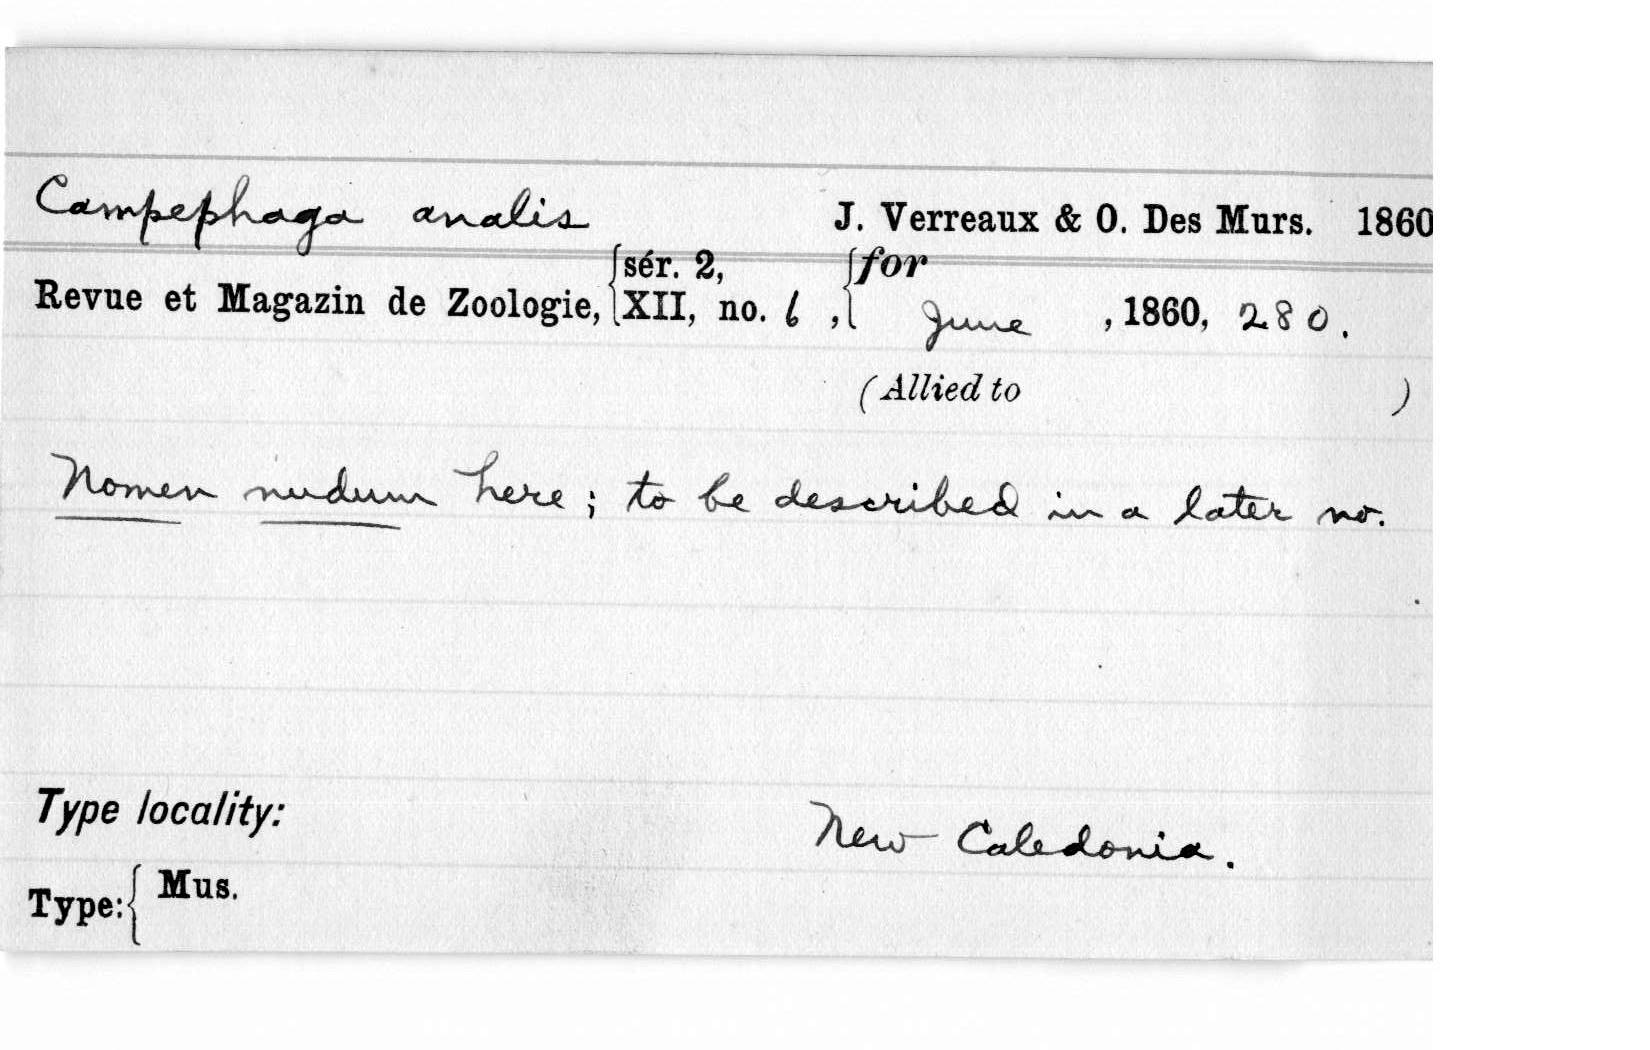 Campephaga analis J. Verreaux & O. Des Murs. 1860
sér. 2, for
Revue et Magazin de Zoologie, XII, no. 6, June, 1860, 280.
(Allied to )
Nomen nudum here; to be described in a later no.
Type locality: New Caledonia.
Type: Mus.